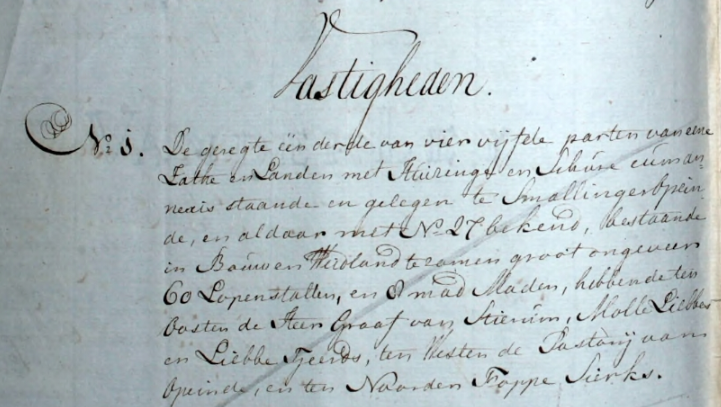 Vastigheden.
No 1. De geregte een derde van vier vijfde parten van eene
Zathe en Landen met Huizinge en Schure cum an-
nexis staande en gelegen te Smallingeropein-
de, en aldaar met No 27 bekend, bestaande
in Bouw en Weidland te zamen groot ongeveer
60 Lopenstallen, en 8 mad Maden, hebbende ten
Oosten de Heer Graaf van Stirum, Molle Liebbes
en Liebbe Tjeerds, ten Westen de Pastorij van
Opeinde, en ten Noorden Foppe Sierks.